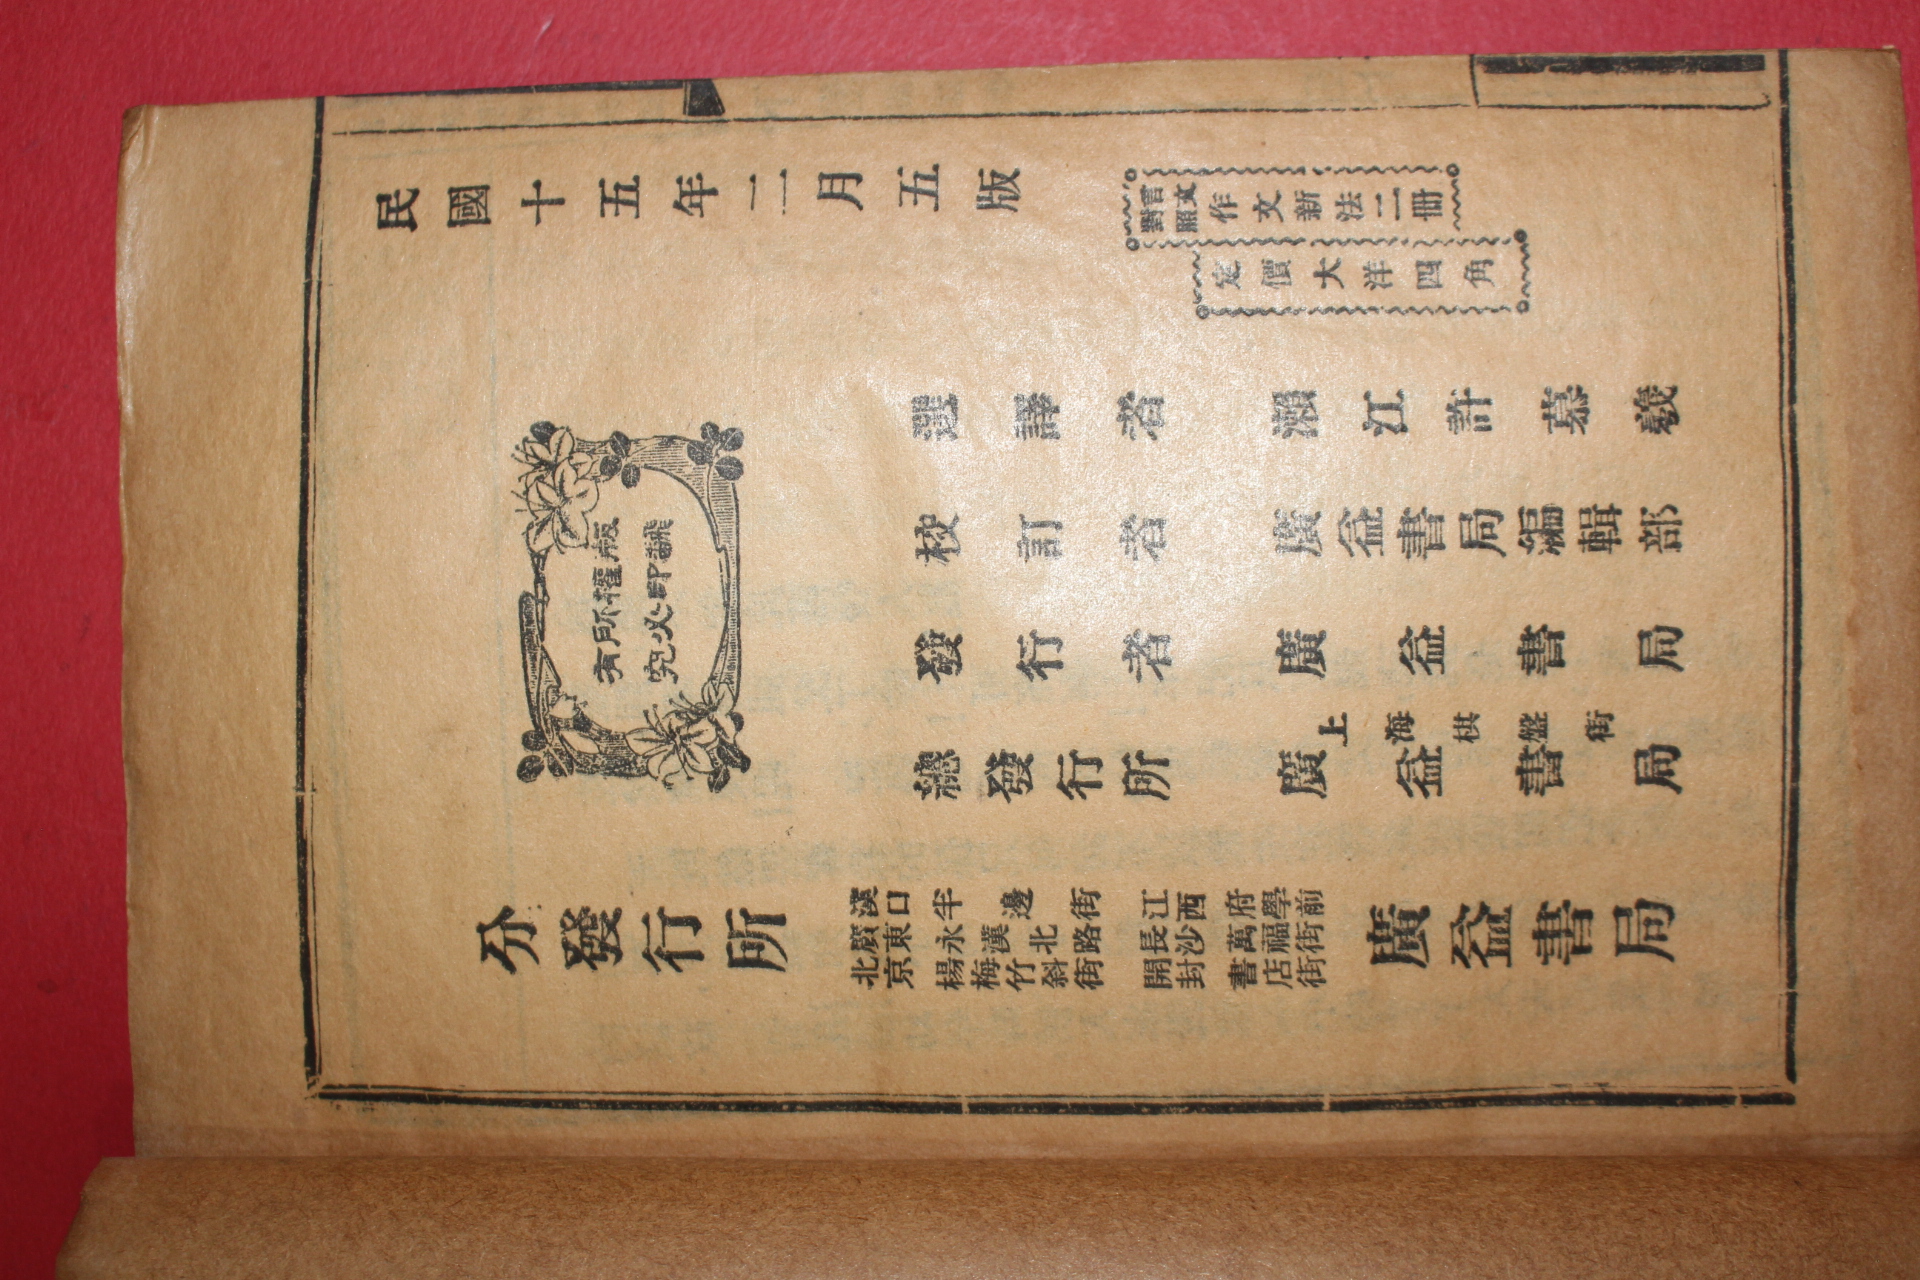 民國十五年二月五版
言文對照作文新法二冊
定價大洋四角
版權所有
翻印必究
選譯者 瀨江許慕羲
校訂者 廣益書局編輯部
發行者 廣益書局
上海棋盤街
總發行所 廣益書局
分發行所
漢口半邊街 江西府學前
廣東永漢北路 長沙萬福街
北京楊梅竹斜街 開封書店街
廣益書局